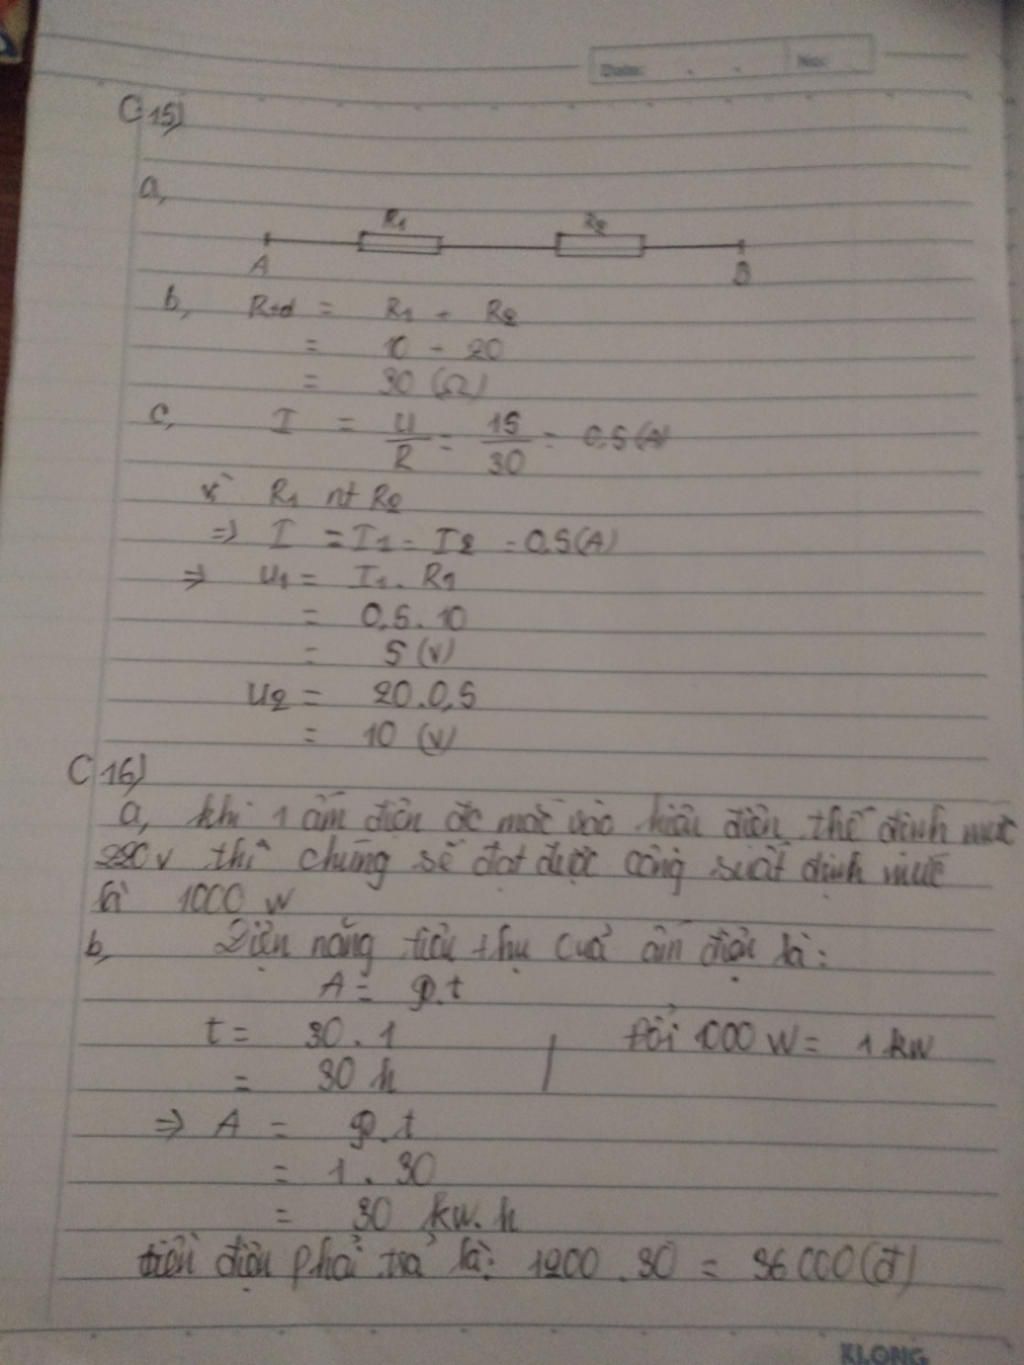 Date: No:
C15)
a,
R1 R2
A B
b, Rtđ = R1 + R2
= 10 + 20
= 30 (Ω)
c, I = U/R = 15/30 = 0,5 (A)
vì R1 nt R2
=> I = I1 = I2 = 0,5(A)
=> U1 = I1. R1
= 0,5. 10
= 5 (V)
U2 = 20.0,5
= 10 (V)
C16)
a, khi 1 ấm điện mắc vào hiệu điện thế định mức
220V thì chúng sẽ đạt được công suất định mức
là 1000 W
b, Điện năng tiêu thụ của ấm điện là:
A = P.t
t = 30. 1 Đổi 1000 W = 1 kW
= 30 h
=> A = P.t
= 1 . 30
= 30 kW.h
tiền điện phải trả là: 1200 . 30 = 36 000 (đ)
KLONG